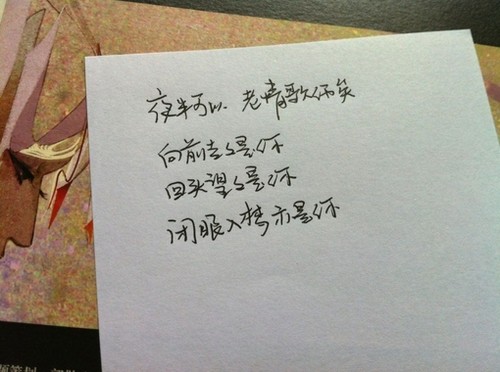 夜半可以 老情歌伤柔
向前走是你
回头望是你
闭眼入梦亦是你